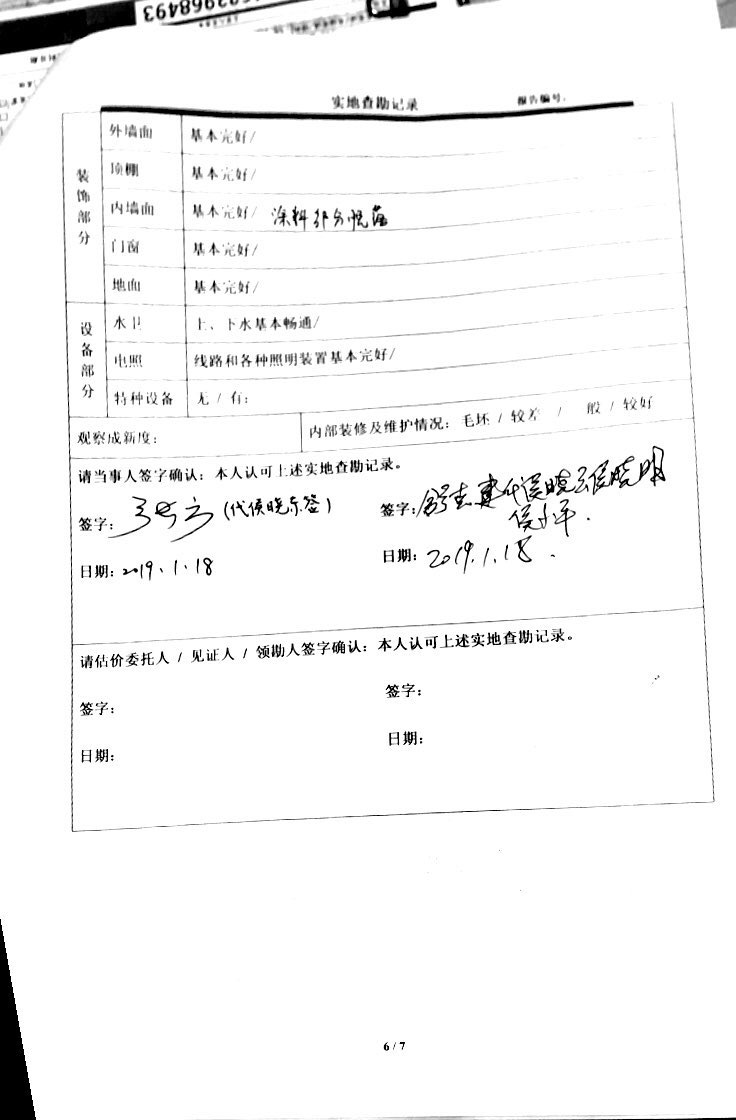 实地查勘记录 报告编号:
装饰部分
外墙面 基本完好/
顶棚 基本完好/
内墙面 基本完好/ 涂料部分脱落
门窗 基本完好/
地面 基本完好/
设备部分
水卫 上、下水基本畅通/
电照 线路和各种照明装置基本完好/
特种设备 无 / 有:
观察成新度: 内部装修及维护情况: 毛坯 / 较差 / 一般 / 较好
请当事人签字确认: 本人认可上述实地查勘记录。
签字: (代侯晓东签) 签字: 代侯晓 侯晓明
日期: 2019.1.18 日期: 2019.1.18.
请估价委托人 / 见证人 / 领勘人签字确认: 本人认可上述实地查勘记录。
签字: 签字:
日期: 日期:
6 / 7